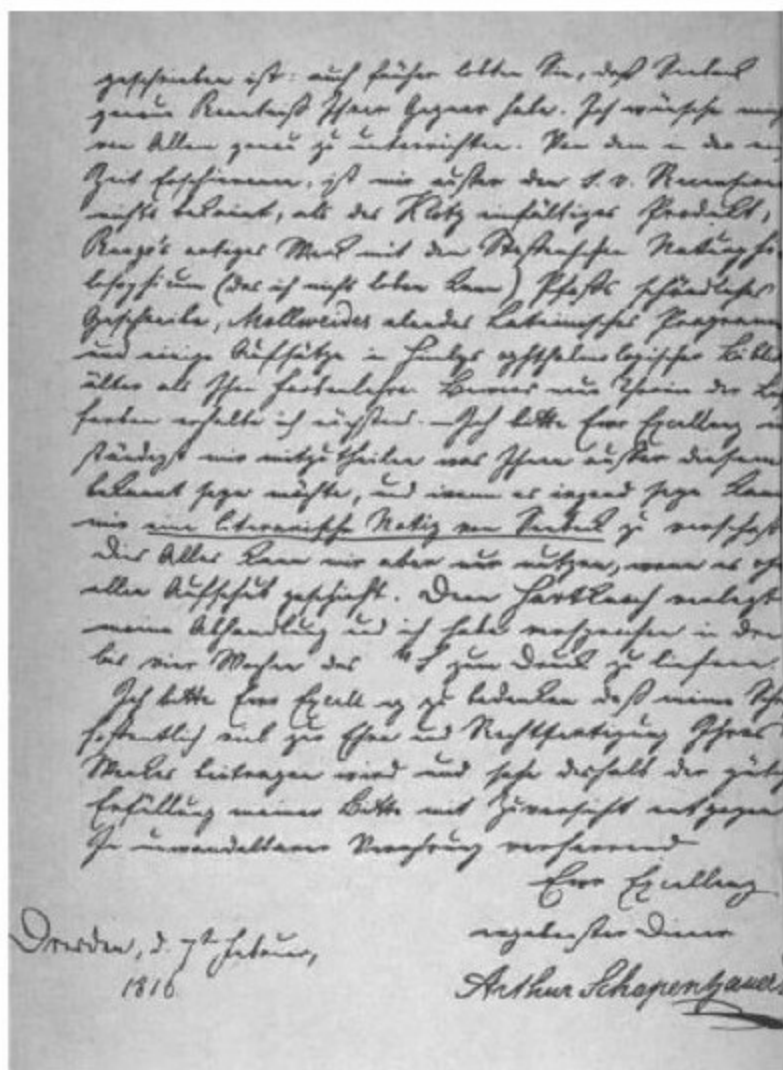 geschrieben ist: auch früher lobten Sie, daß Seebeck
genaue Kenntniß Ihrer Gegner habe. Ich wünsche
von Allem genau zu unterrichten. Von dem in der
Zeit Erschienenen, ist mir außer den Recensionen
nichts bekannt, als des Klotz einfältiges Produkt,
Werk mit den Steffenschen
(das ich nicht loben kann) Pfaffs schändliches
Geschreibe, Mollweides elendes Lateinisches Programm
und einige Aufsätze in Himlys ophthalmologischer
älter als Ihre Farbenlehre. der
Farben erhalte ich nächstens. – Ich bitte Ewr Excellenz
mir mitzutheilen was Ihnen außer diesem
bekannt seyn möchte, und wenn es irgend seyn kann
mir eine literarische Notiz von Seebeck zu
Dies Alles kann mir aber nur nutzen, wenn es
allen Aufschub geschieht. Denn Hartknoch verlegt
meine Abhandlung und ich habe versprochen in
bis vier Wochen das zum Druck zu liefern.
Ich bitte Ewr Excell zu bedenken daß meine
hoffentlich viel zur Ehre und Rechtfertigung Ihres
Werkes beitragen wird und sehe deshalb der
Erfüllung meiner Bitte mit Zuversicht entgegen
In unwandelbarer Verehrung verharrend
Ewr Excellenz
ergebenster Diener
Dresden, d. 7t Februar,
1816
Arthur Schopenhauer